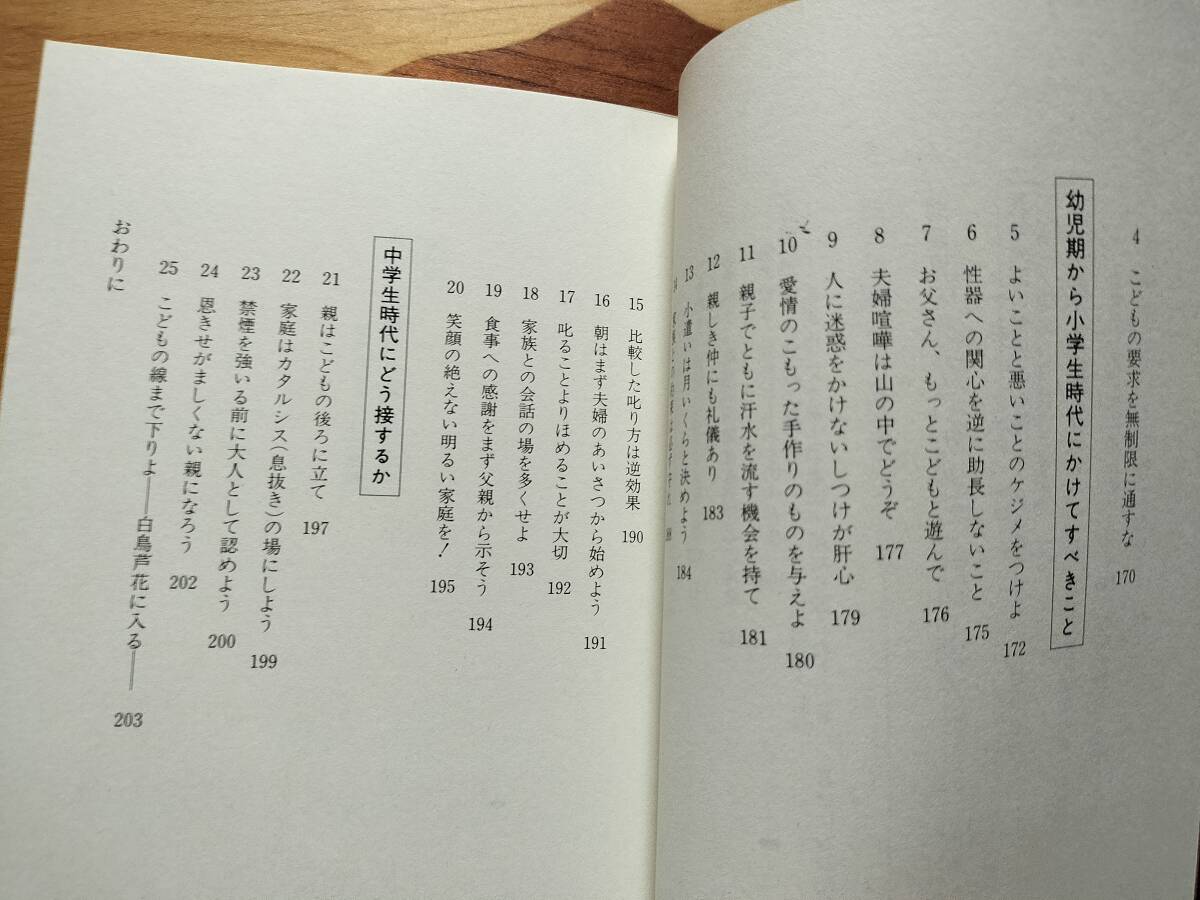 4 こどもの要求を無制限に通すな 170
幼児期から小学生時代にかけてすべきこと
5 よいことと悪いことのケジメをつけよ 172
6 性器への関心を逆に助長しないこと 175
7 お父さん、もっとこどもと遊んで 176
8 夫婦喧嘩は山の中でどうぞ 177
9 人に迷惑をかけないしつけが肝心 179
10 愛情のこもった手作りのものを与えよ 180
11 親子でともに汗水を流す機会を持て 181
12 親しき仲にも礼儀あり 183
13 小遣いは月いくらと決めよう 184
14
15 比較した叱り方は逆効果 190
16 朝はまず夫婦のあいさつから始めよう 191
17 叱ることよりほめることが大切 192
18 家族との会話の場を多くせよ 193
19 食事への感謝をまず父親から示そう 194
20 笑顔の絶えない明るい家庭を! 195
中学生時代にどう接するか
21 親はこどもの後ろに立て 197
22 家庭はカタルシス(息抜き)の場にしよう 199
23 禁煙を強いる前に大人として認めよう 200
24 恩きせがましくない親になろう 202
25 こどもの線まで下りよ――白鳥芦花に入る―― 203
おわりに